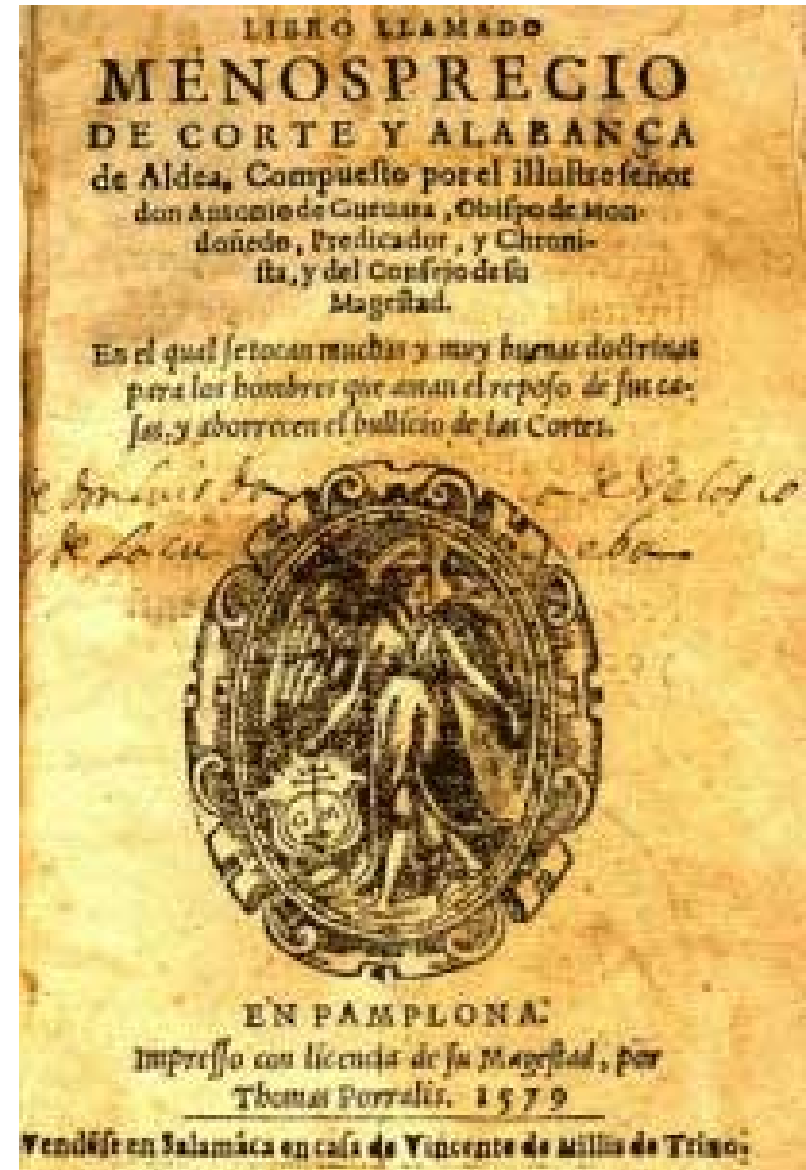 LIBRO LLAMADO
MENOSPRECIO
DE CORTE Y ALABANÇA
de Aldea, Compueſto por el illuſtre ſeñor
don Antonio de Gueuara, Obiſpo de Mon-
doñedo, Predicador, y Chroni-
ſta, y del Conſejo de ſu
Mageſtad.
En el qual ſe tocan muchas y muy buenas doctrinas
para los hombres que aman el repoſo de ſus ca-
ſas, y aborrecen el bullicio de las Cortes.
de don Luis de Velasco
de la
EN PAMPLONA.
Impreſſo con licencia de ſu Mageſtad, por
Thomas Porralis. 1579
Vendẽſe en Salamãca en caſa de Vincente de Millis de Trino.